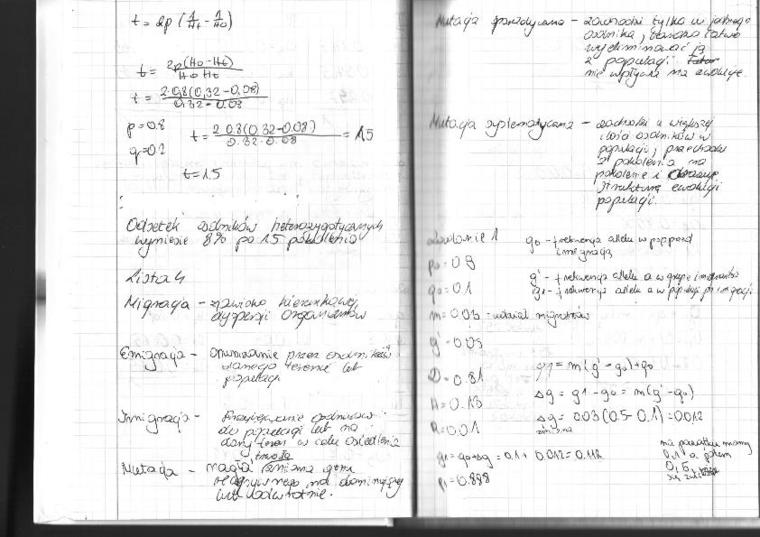 t = 2p (1/Ht - 1/H0)
t = 2p(H0-Ht) / H0 Ht
t = 2·0,8(0,32-0,08) / 0,32·0,08
p=0.8
q=0.2
t = 2·0.8(0.32-0.08) / 0.32·0.08 = 15
t=15
Odsetek osobników heterozygotycznych
wyniesie 8% po 15 pokoleniach
Lista 4
Migracja - zjawisko kierunkowej
dyspersji organizmów
Emigracja - opuszczanie przez osobników
danego terenu lub
populacji
Imigracja -
do populacji lub na
dany teren w celu osiedlenia
Mutacja - nagła zmiana genu
recesywnego na dominujący
lub odwrotnie.
Mutacja sporadyczna - zachodzi tylko w jednego
osobnika, łatwo
wyeliminować ją
z populacji
nie wpływa na ewolucje.
Mutacja systematyczna - zachodzi u większej
ilości osobników w
populacji, przechodzi
z pokolenia na
pokolenie i
strukturę ewolucji
populacji.
Zadanie 1
p0 = 0.9
q0 = 0.1
m = 0.03 = udział migrantów
q' = 0.5
D = 0.81
H = 0.18
R = 0.01
q0 - frekwencja allelu w pop przed
imigracją
q' - frekwencja allelu a w grupie imigrantów
q1 - frekwencja allelu a w populacji po imigracji
q1 = m(q' - q0) + q0
Δq = q1 - q0 = m(q' - q0)
Δq = 0.03 (0.5 - 0.1) = 0.012
zmiana
q1 = q0 + Δq = 0.1 + 0.012 = 0.112
p1 = 0.888
na początku mamy
0,1 a potem
0,5